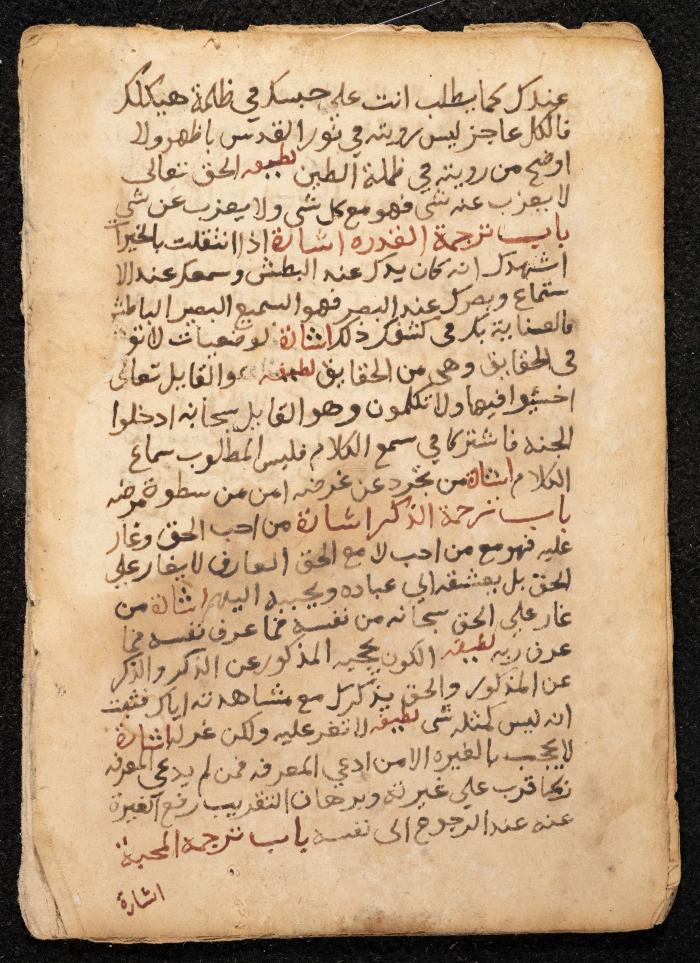 عندك كما يطلب انت علي حبسك في ظلمة هيكلك
فالكل عاجز ليس رويته في نور القدس باظهر ولا
اوضح من رويته في ظلمة الطين لطيفه الحق تعالى
لا يعزب عنه شي فهو مع كل شي ولا يعزب عن شي
باب ترجمة القدره اشارة اذا انتقلت بالخيرات
اشهدك انه كان يدك عند البطش وسمعك عند الا
ستماع وبصرك عند البصر فهو السميع البصير الباطش
فالعناية بك في كشفك ذلك اشارة لو ضعيات لا تو
في الحقايق وهي من الحقايق لطيفه والقايل تعالى
اخسئوا فيها ولا تكلمون وهو القايل سبحانه ادخلوا
الجنه فاشتركا في سمع الكلام فليس المطلوب سماع
الكلام اشارة من تجرد عن غرضه امن من سطوة مرضه
باب ترجمة الذكر اشارة من احب الحق وغار
عليه فهو مع من احب لا مع الحق العارف لا يغار علي
الحق بل يعشقه الي عباده ويحببه اليهم اشارة من
غار علي الحق سبحانه من نفسه فما عرف نفسه فما
عرف ربه لطيفه الكون يحجبه المذكور عن الذكر والذكر
عن المذكور والحق يذكرك مع مشاهدته اياك فثبت
انه ليس كمثله شي لطيفه لا تغر عليه ولكن غر له اشارة
لا يحجب بالغيره الا من ادعي المعرفه فمن لم يدعي المعرفه
فما قرب علي غيرته وبرهان التقريب رفع الغيرة
عنه عند الرجوع الى نفسه باب ترجمة المحبة
اشارة